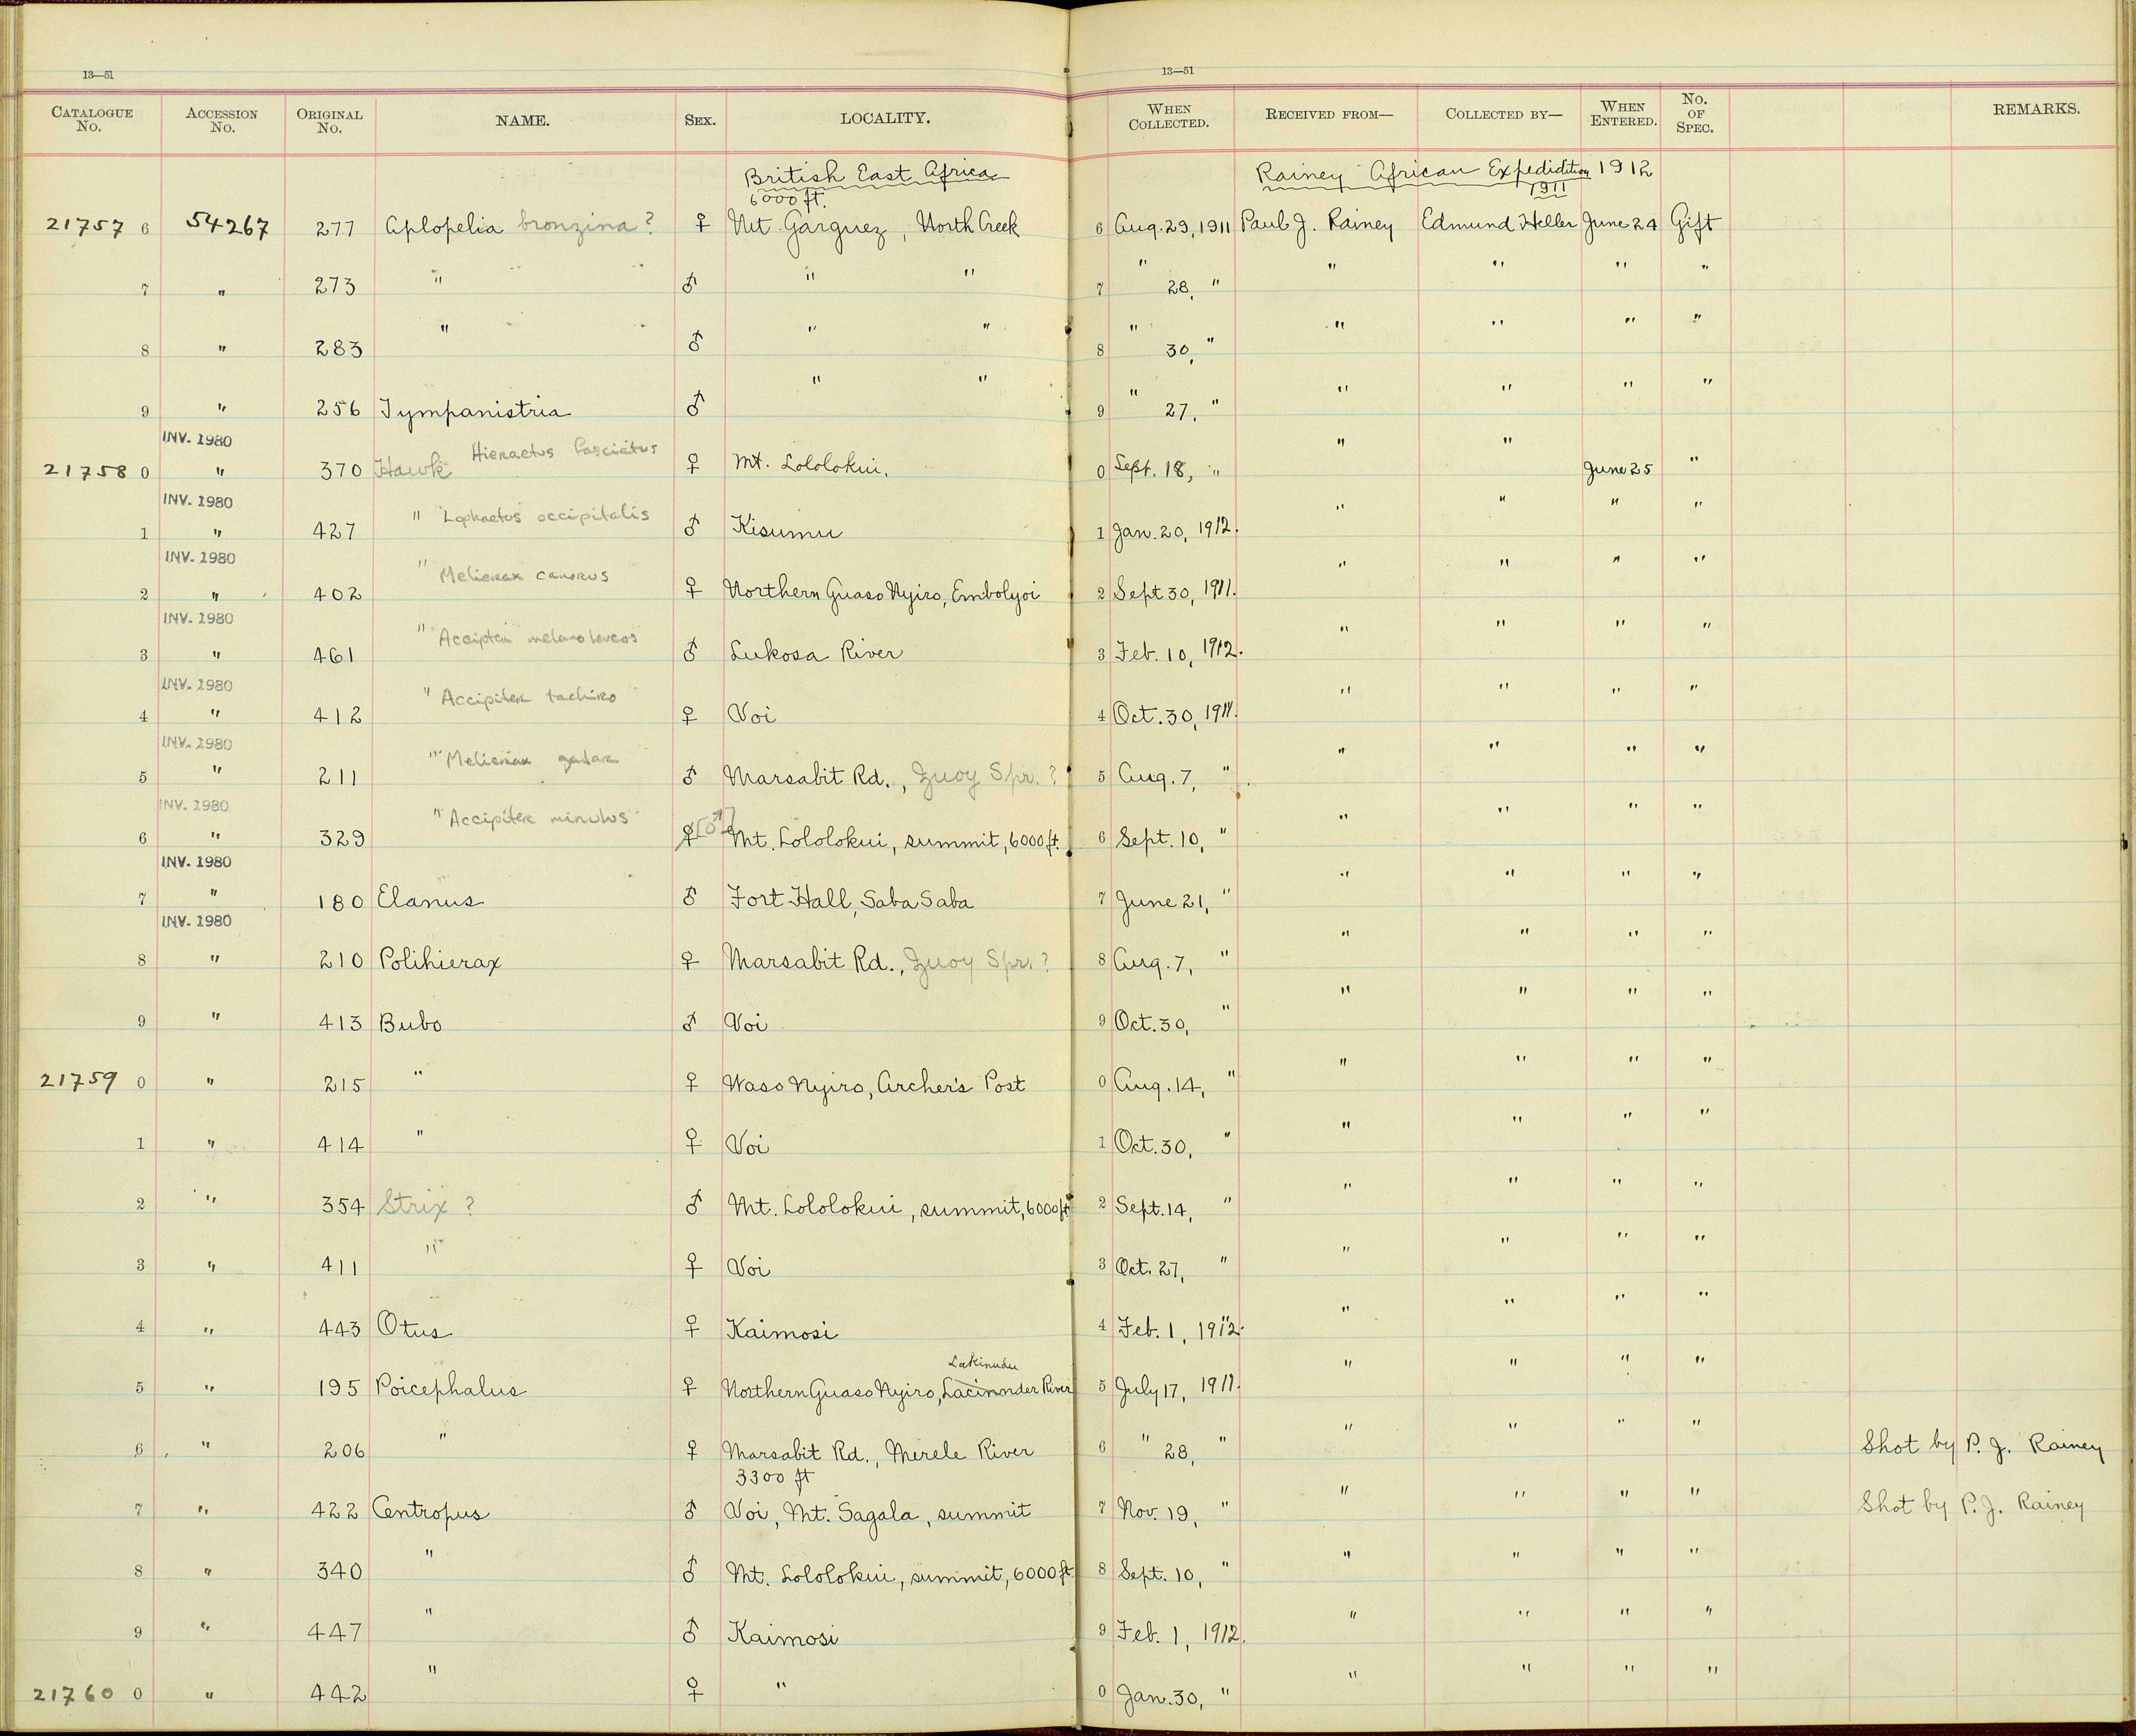 13—51 13—51
CATALOGUE No. ACCESSION No. ORIGINAL No. NAME. SEX. LOCALITY. WHEN COLLECTED. RECEIVED FROM— COLLECTED BY— WHEN ENTERED. No. OF SPEC. REMARKS.
British East Africa Rainey African Expedidition 1912
6000 ft. 1911
21757 6 54267 277 Aplopelia bronzina? ♀ Mt. Garguez, North Creek 6 Aug. 29, 1911 Paul J. Rainey Edmund Heller June 24 Gift
7 " 273 " ♂ " " 7 " 28, " " " " "
8 " 283 " ♂ " " 8 " 30, " " " " "
9 " 256 Tympanistria ♂ " " 9 " 27, " " " " "
INV. 1980
21758 0 " 370 Hawk Hieraetus fasciatus ♀ Mt. Lololokui. 0 Sept. 18, " " " June 25 "
INV. 1980
1 " 427 " Lophaetus occipitalis ♂ Kisumu 1 Jan. 20, 1912. " " " "
INV. 1980
2 " 402 " Melierax canorus ♀ Northern Guaso Nyiro, Embolyoi 2 Sept 30, 1911. " " " "
INV. 1980
3 " 461 " Accipiter melanoleucos ♂ Lukosa River 3 Feb. 10, 1912. " " " "
INV. 1980
4 " 412 " Accipiter tachiro ♀ Voi 4 Oct. 30, 1911. " " " "
INV. 1980
5 " 211 " Melierax gabar ♂ Marsabit Rd., Zuoy Spr.? 5 Aug. 7, " " " " "
INV. 1980
6 " 329 " Accipiter minulus ♀ [♂] Mt. Lololokui, summit, 6000 ft. 6 Sept. 10, " " " " "
INV. 1980
7 " 180 Elanus ♂ Fort Hall, Saba Saba 7 June 21, " " " " "
INV. 1980
8 " 210 Polihierax ♀ Marsabit Rd., Zuoy Spr.? 8 Aug. 7, " " " " "
9 " 413 Bubo ♂ Voi 9 Oct. 30, " " " " "
21759 0 " 215 " ♀ Waso Nyiro, Archer's Post 0 Aug. 14, " " " " "
1 " 414 " ♀ Voi 1 Oct. 30, " " " " "
2 " 354 Strix ? ♂ Mt. Lololokui, summit, 6000 ft 2 Sept. 14, " " " " "
3 " 411 " ♀ Voi 3 Oct. 27, " " " " "
4 " 443 Otus ♀ Kaimosi 4 Feb. 1, 1912. " " " "
Lakinudu
5 " 195 Poicephalus ♀ Northern Guaso Nyiro, Lacinnder River 5 July 17, 1911. " " " "
6 " 206 " ♀ Marsabit Rd., Merele River 6 " 28, " " " " " Shot by P. J. Rainey
3300 ft
7 " 422 Centropus ♂ Voi, Mt. Sagala, summit 7 Nov. 19, " " " " " Shot by P. J. Rainey
8 " 340 " ♂ Mt. Lololokui, summit, 6000 ft. 8 Sept. 10, " " " " "
9 " 447 " ♂ Kaimosi 9 Feb. 1, 1912. " " " "
21760 0 " 442 " ♀ " 0 Jan. 30, " " " " "